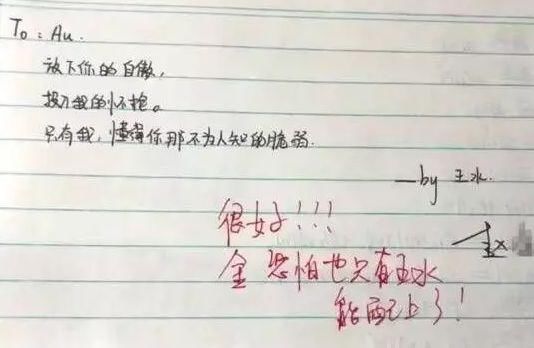 To: Au.
放下你的自傲,
投入我的怀抱。
只有我,懂得你那不为人知的脆弱.
—by 王水.
很好!!!
金恐怕也只有王水
能配上了!